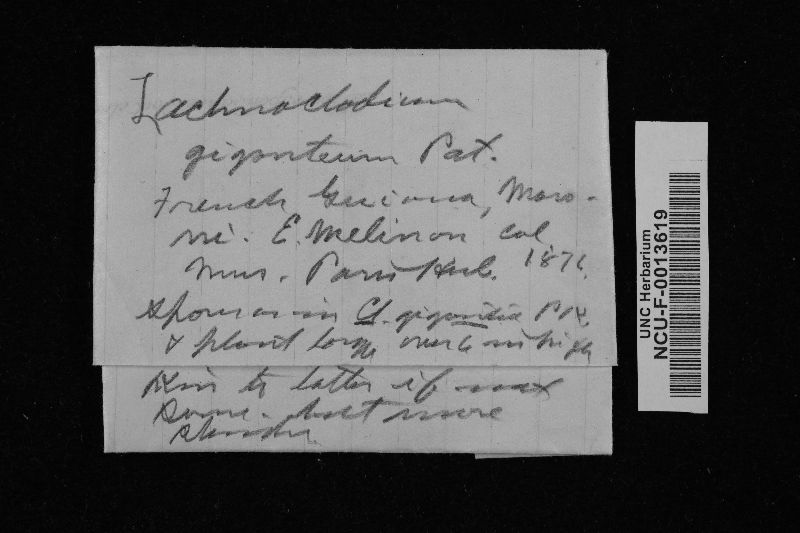 Lachnocladium
giganteum Pat.
French Guiana, Maro-
ni. E. Melinon col.
Mus. Paris Herb. 1876.
Spores as in Cl.
& plant large over 6 in high
Kin to latter if not
same. but more
slender.
UNC Herbarium
NCU-F-0013619